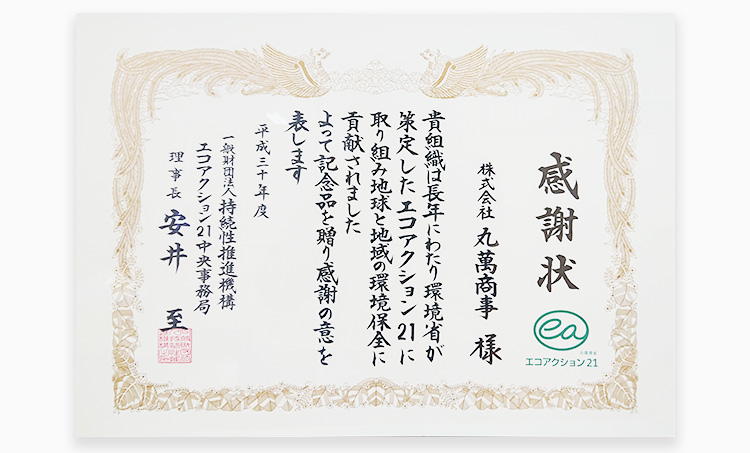 感謝状
ea
エコアクション21
株式会社 丸萬商事 様
貴組織は長年にわたり環境省が
策定したエコアクション21に
取り組み地球と地域の環境保全に
貢献されました
よって記念品を贈り感謝の意を
表します
平成三十年度
一般財団法人 持続性推進機構
エコアクション21中央事務局
理事長 安井 至